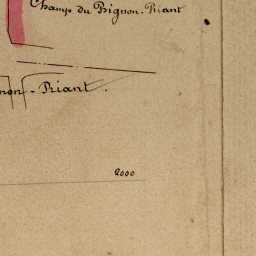 Champ du Pignon-Riant
non-Priant.
2000